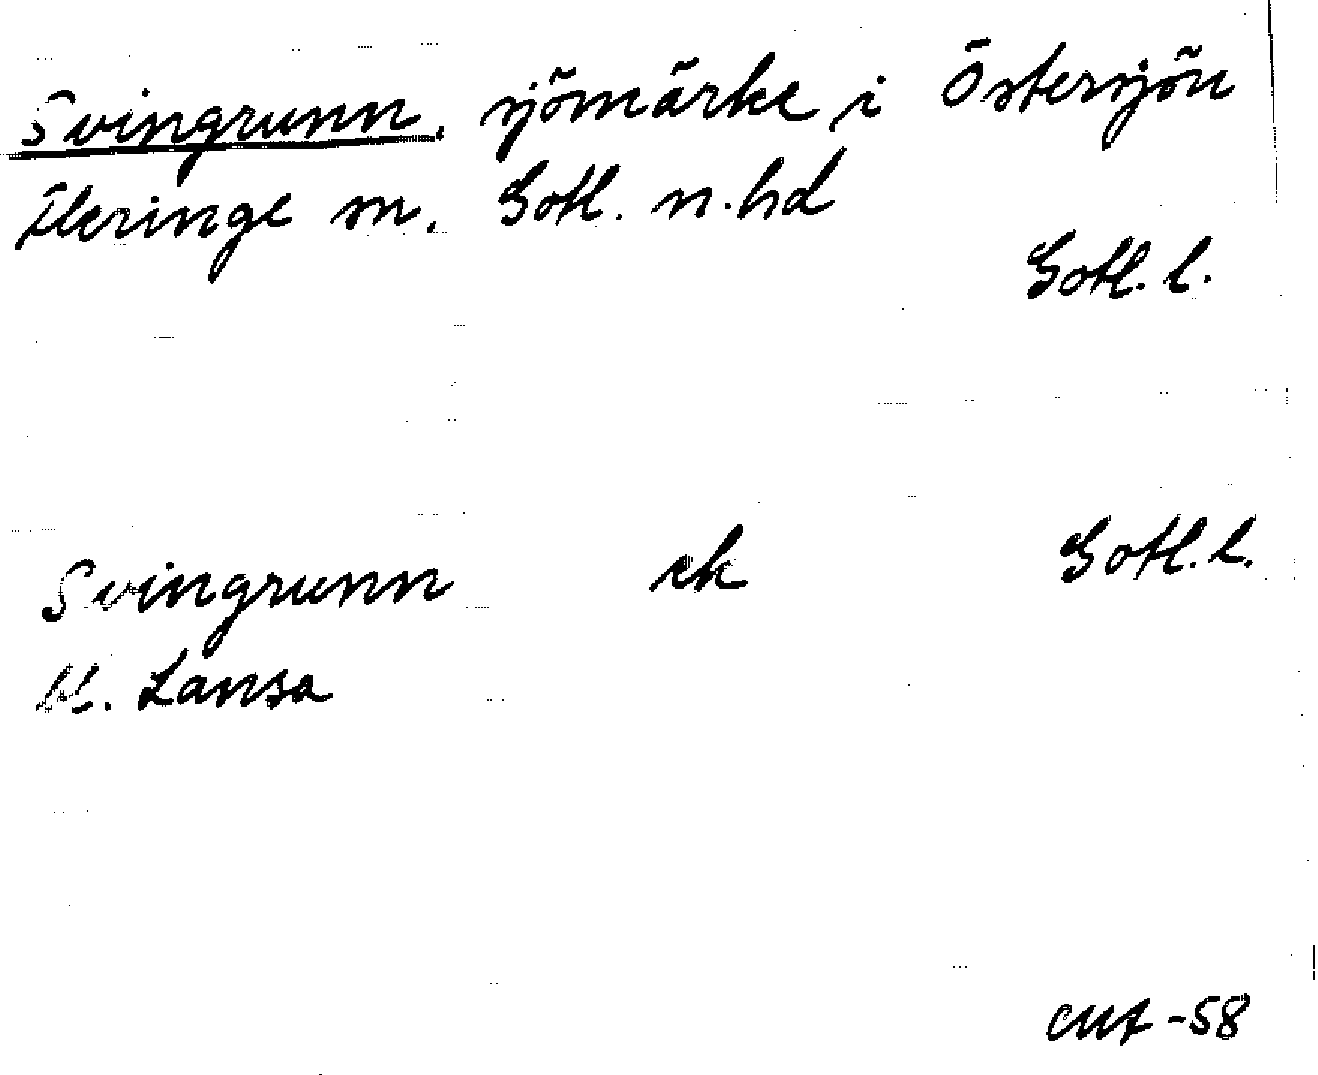 Svingrunn, sjömärke i Östersjön
Fleringe sn. Gotl. n. hd
Gotl. l.
Svingrunn ek Gotl. l.
Lansa
-58